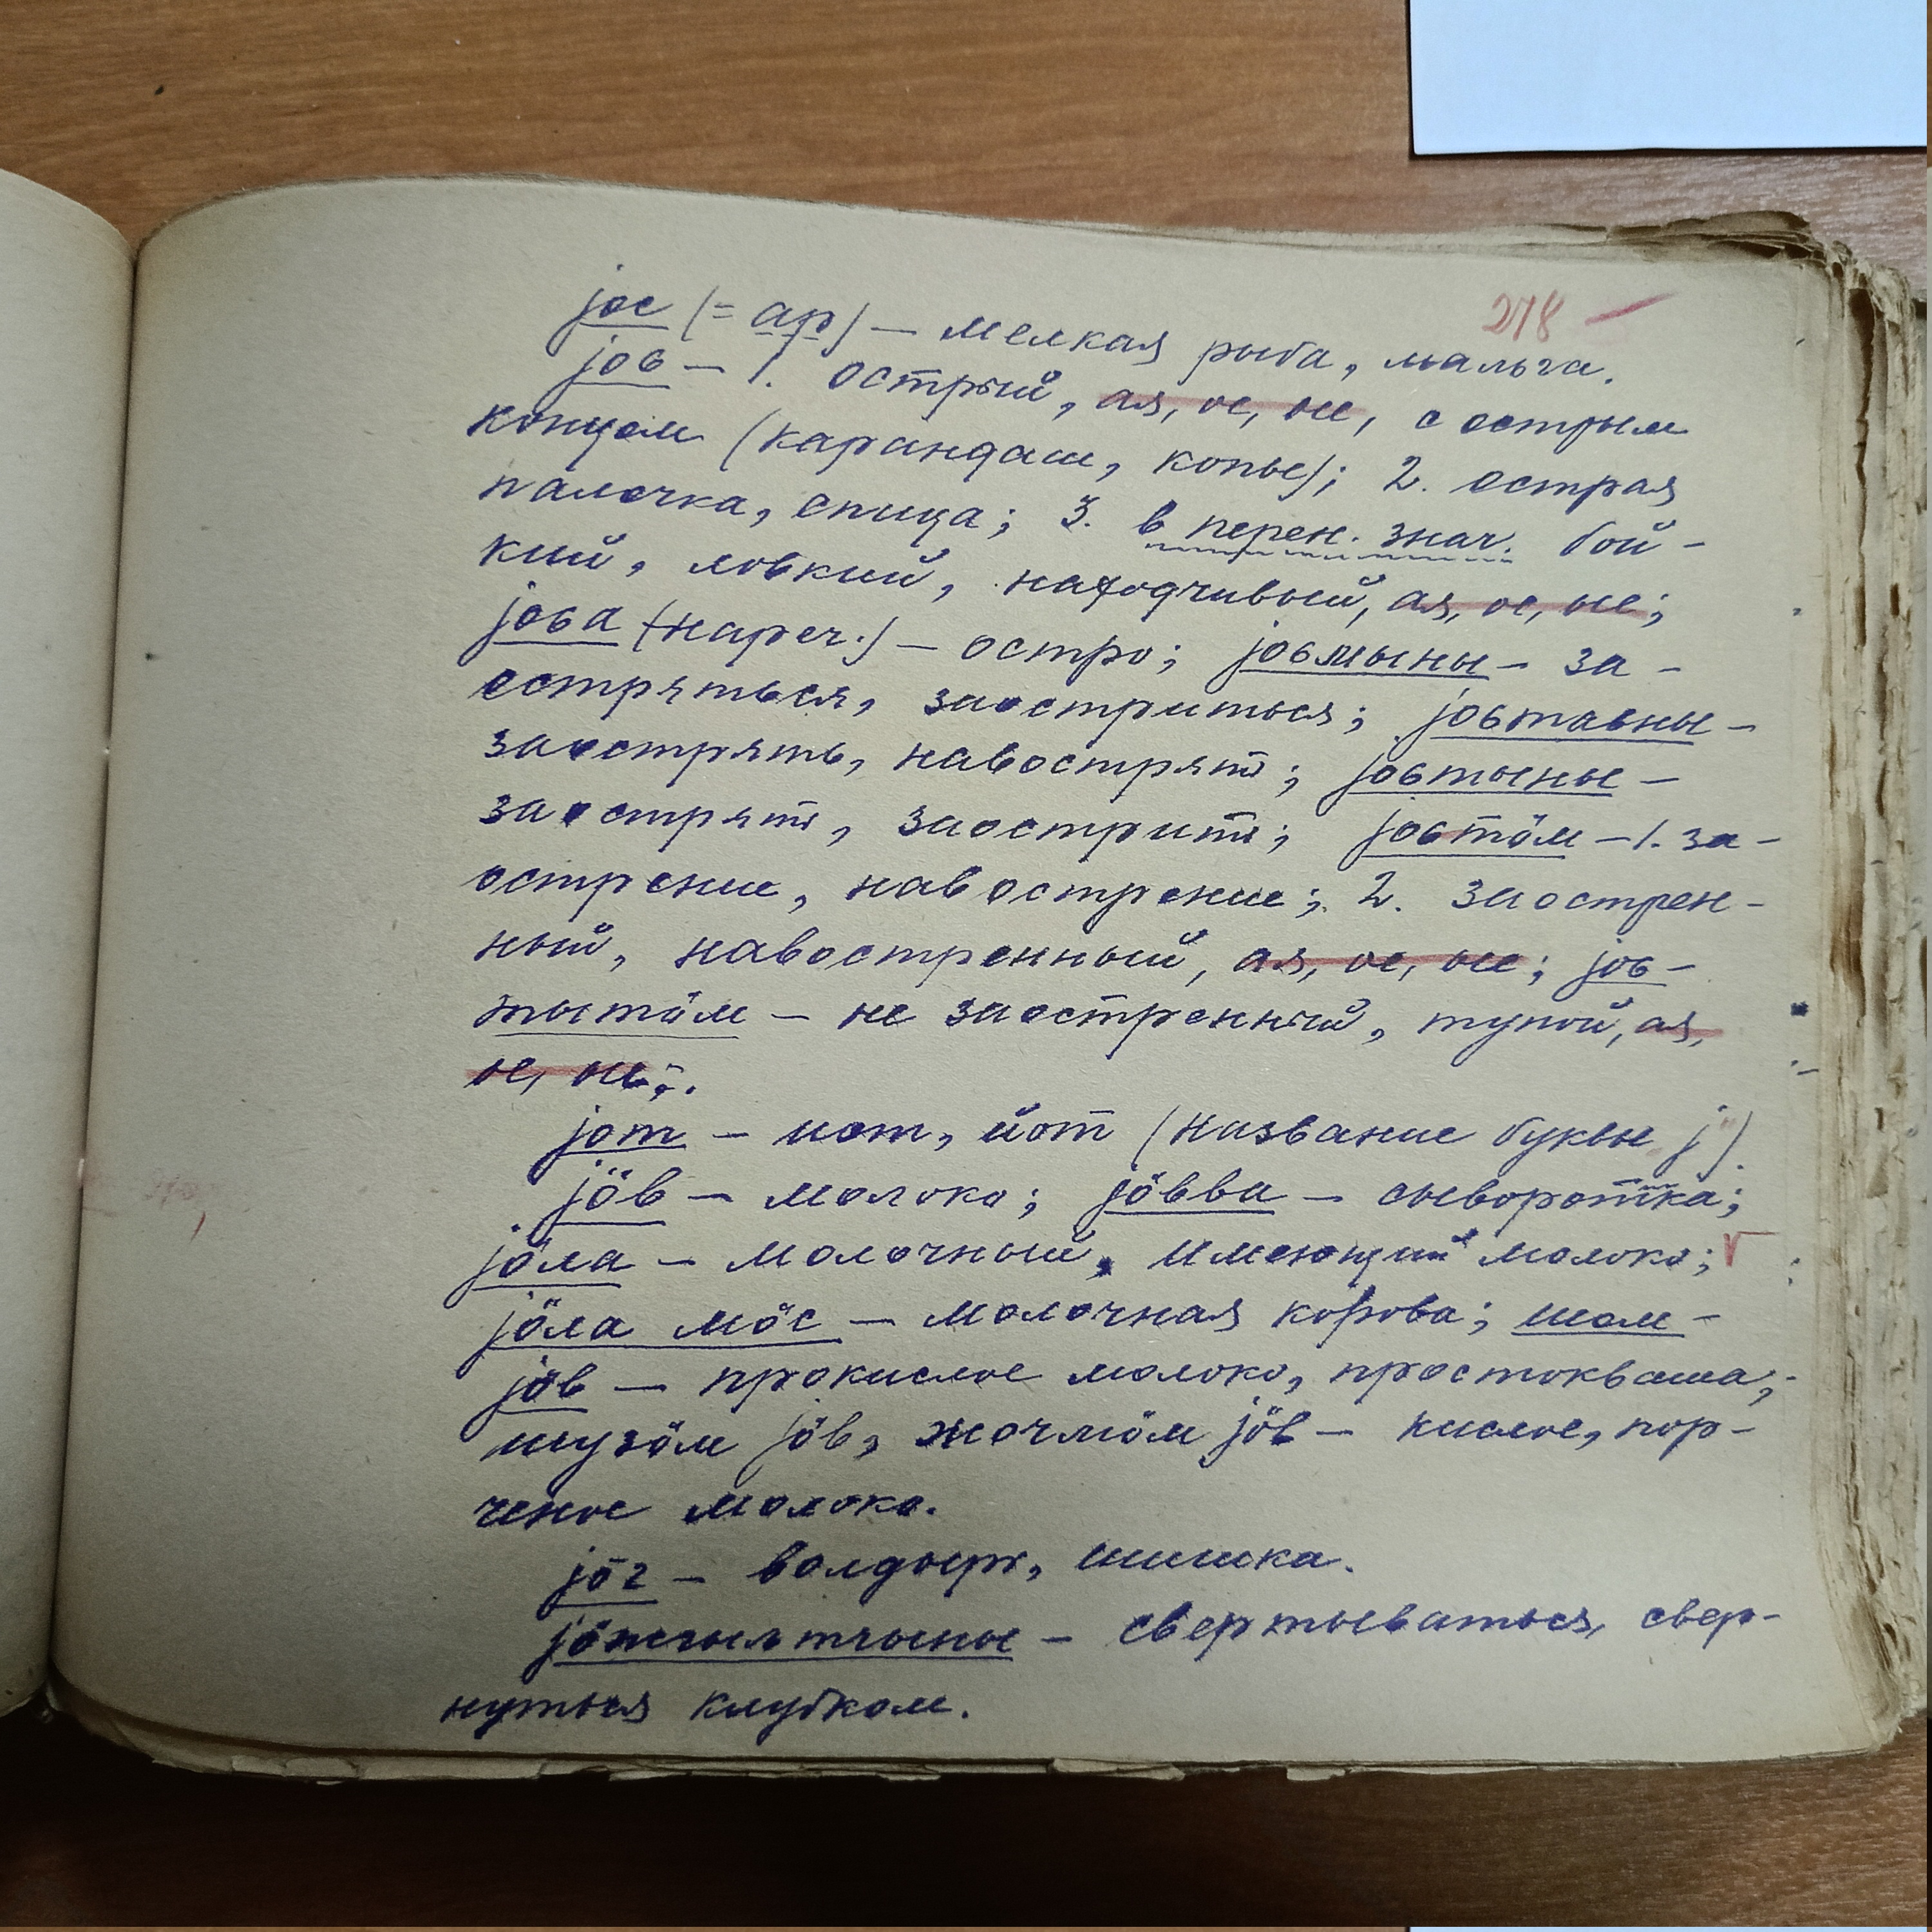 278 —
jос (= ар) — мелкая рыба, мальга.
jов — 1. острый, ая, ое, ые, с острым
концом (карандаш, копье); 2. острая
палочка, спица; 3. в перен. знач. бой-
кий, ловкий, находчивый, ая, ое, ые;
jова (нареч.) — остро; jовмыны — за-
остряться, заостриться; jовтавны —
заострять, навострять; jовтыны —
заострять, заострить; jовтӧм — 1. за-
острение, навострение; 2. заострен-
ный, навостренный, ая, ое, ые; jов-
тытӧм — не заостренный, тупой, ая,
ое, ые;.
jот — иот, йот (название буквы „j").
jӧв — молоко; jӧвва — сыворотка;
jӧла — молочный, имеющий молоко;
jӧла мӧс — молочная корова; шом-
jӧв — прокислое молоко, простокваша;
шузӧм jӧв, жочмӧм jӧв — кислое, пор-
ченое молоко.
jӧг — волдырь, шишка.
jӧжгыльтчыны — свертываться, свер-
нуться клубком.